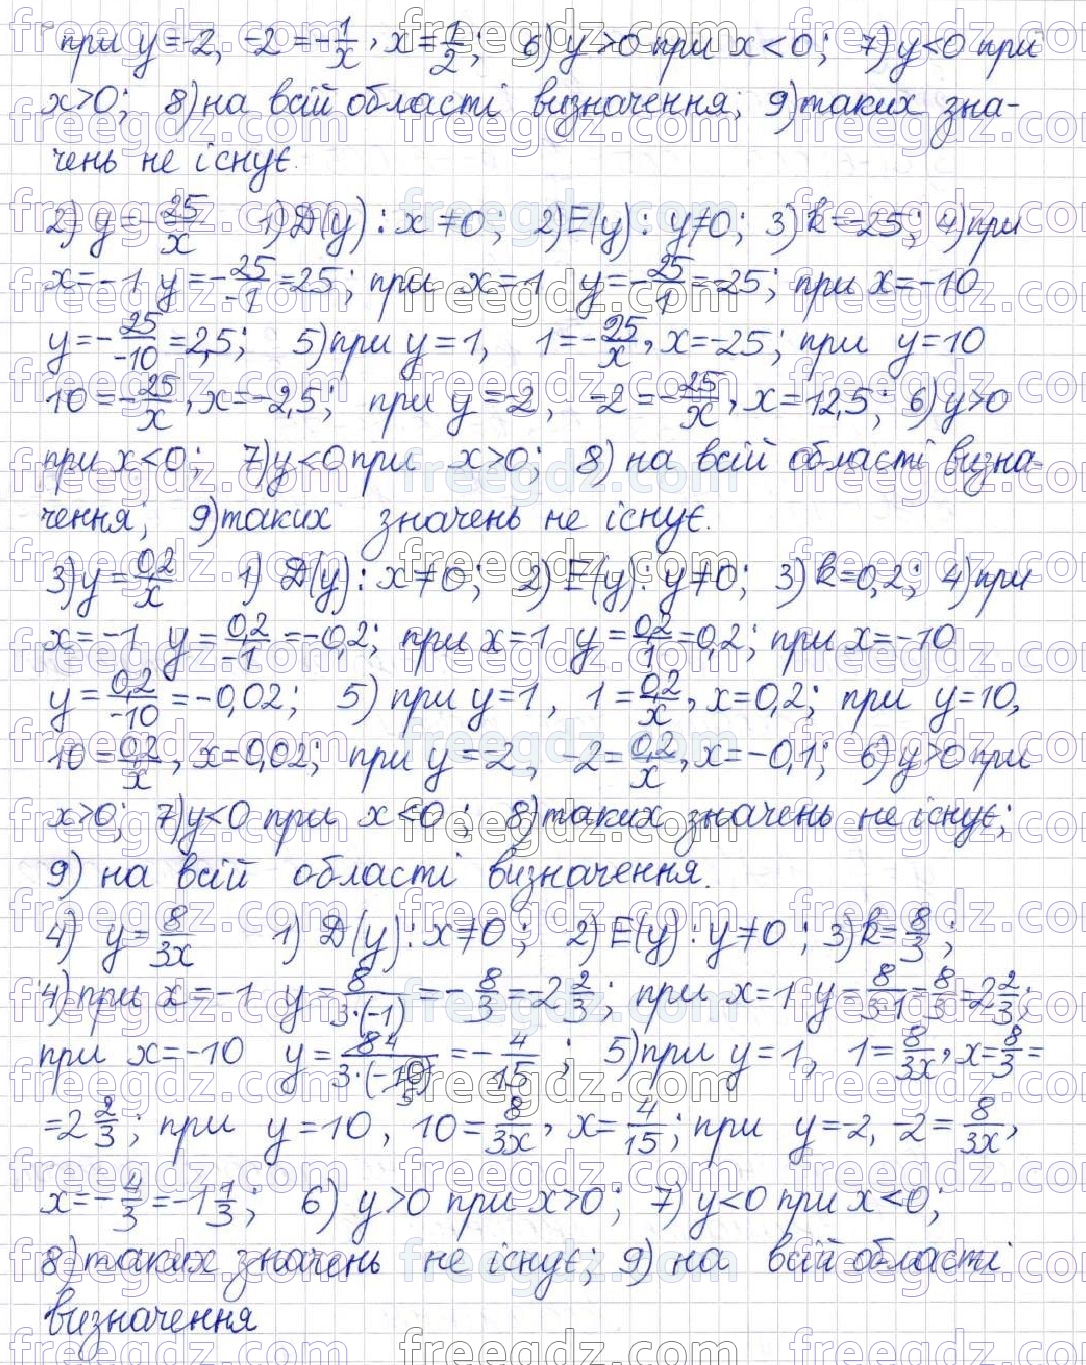 при y=-2, -2=-1/x, x=1/2; 6) y>0 при x<0; 7) y<0 при
x>0; 8) на всій області визначення; 9) таких зна-
чень не існує.
2) y=-25/x 1) D(y): x≠0; 2) E(y): y≠0; 3) k=-25; 4) при
x=-1 y=-25/-1=25; при x=1 y=-25/1=-25; при x=-10
y=-25/-10=2,5; 5) при y=1, 1=-25/x, x=-25; при y=10
10=-25/x, x=-2,5; при y=-2, -2=-25/x, x=12,5; 6) y>0
при x<0; 7) y<0 при x>0; 8) на всій області визна-
чення; 9) таких значень не існує.
3) y=0,2/x 1) D(y): x≠0; 2) E(y): y≠0; 3) k=0,2; 4) при
x=-1 y=0,2/-1=-0,2; при x=1 y=0,2/1=0,2; при x=-10
y=0,2/-10=-0,02; 5) при y=1, 1=0,2/x, x=0,2; при y=10,
10=0,2/x, x=0,02; при y=-2, -2=0,2/x, x=-0,1; 6) y>0 при
x>0; 7) y<0 при x<0; 8) таких значень не існує;
9) на всій області визначення.
4) y=8/3x 1) D(y): x≠0; 2) E(y): y≠0; 3) k=8/3;
4) при x=-1 y=8/3·(-1)=-8/3=-2 2/3; при x=1 y=8/3·1=8/3=2 2/3;
при x=-10 y=8 4/3·(-10 5)=-4/15; 5) при y=1, 1=8/3x, x=8/3=
=2 2/3; при y=10, 10=8/3x, x=4/15; при y=-2, -2=8/3x,
x=-4/3=-1 1/3; 6) y>0 при x>0; 7) y<0 при x<0;
8) таких значень не існує; 9) на всій області
визначення
freegdz.com